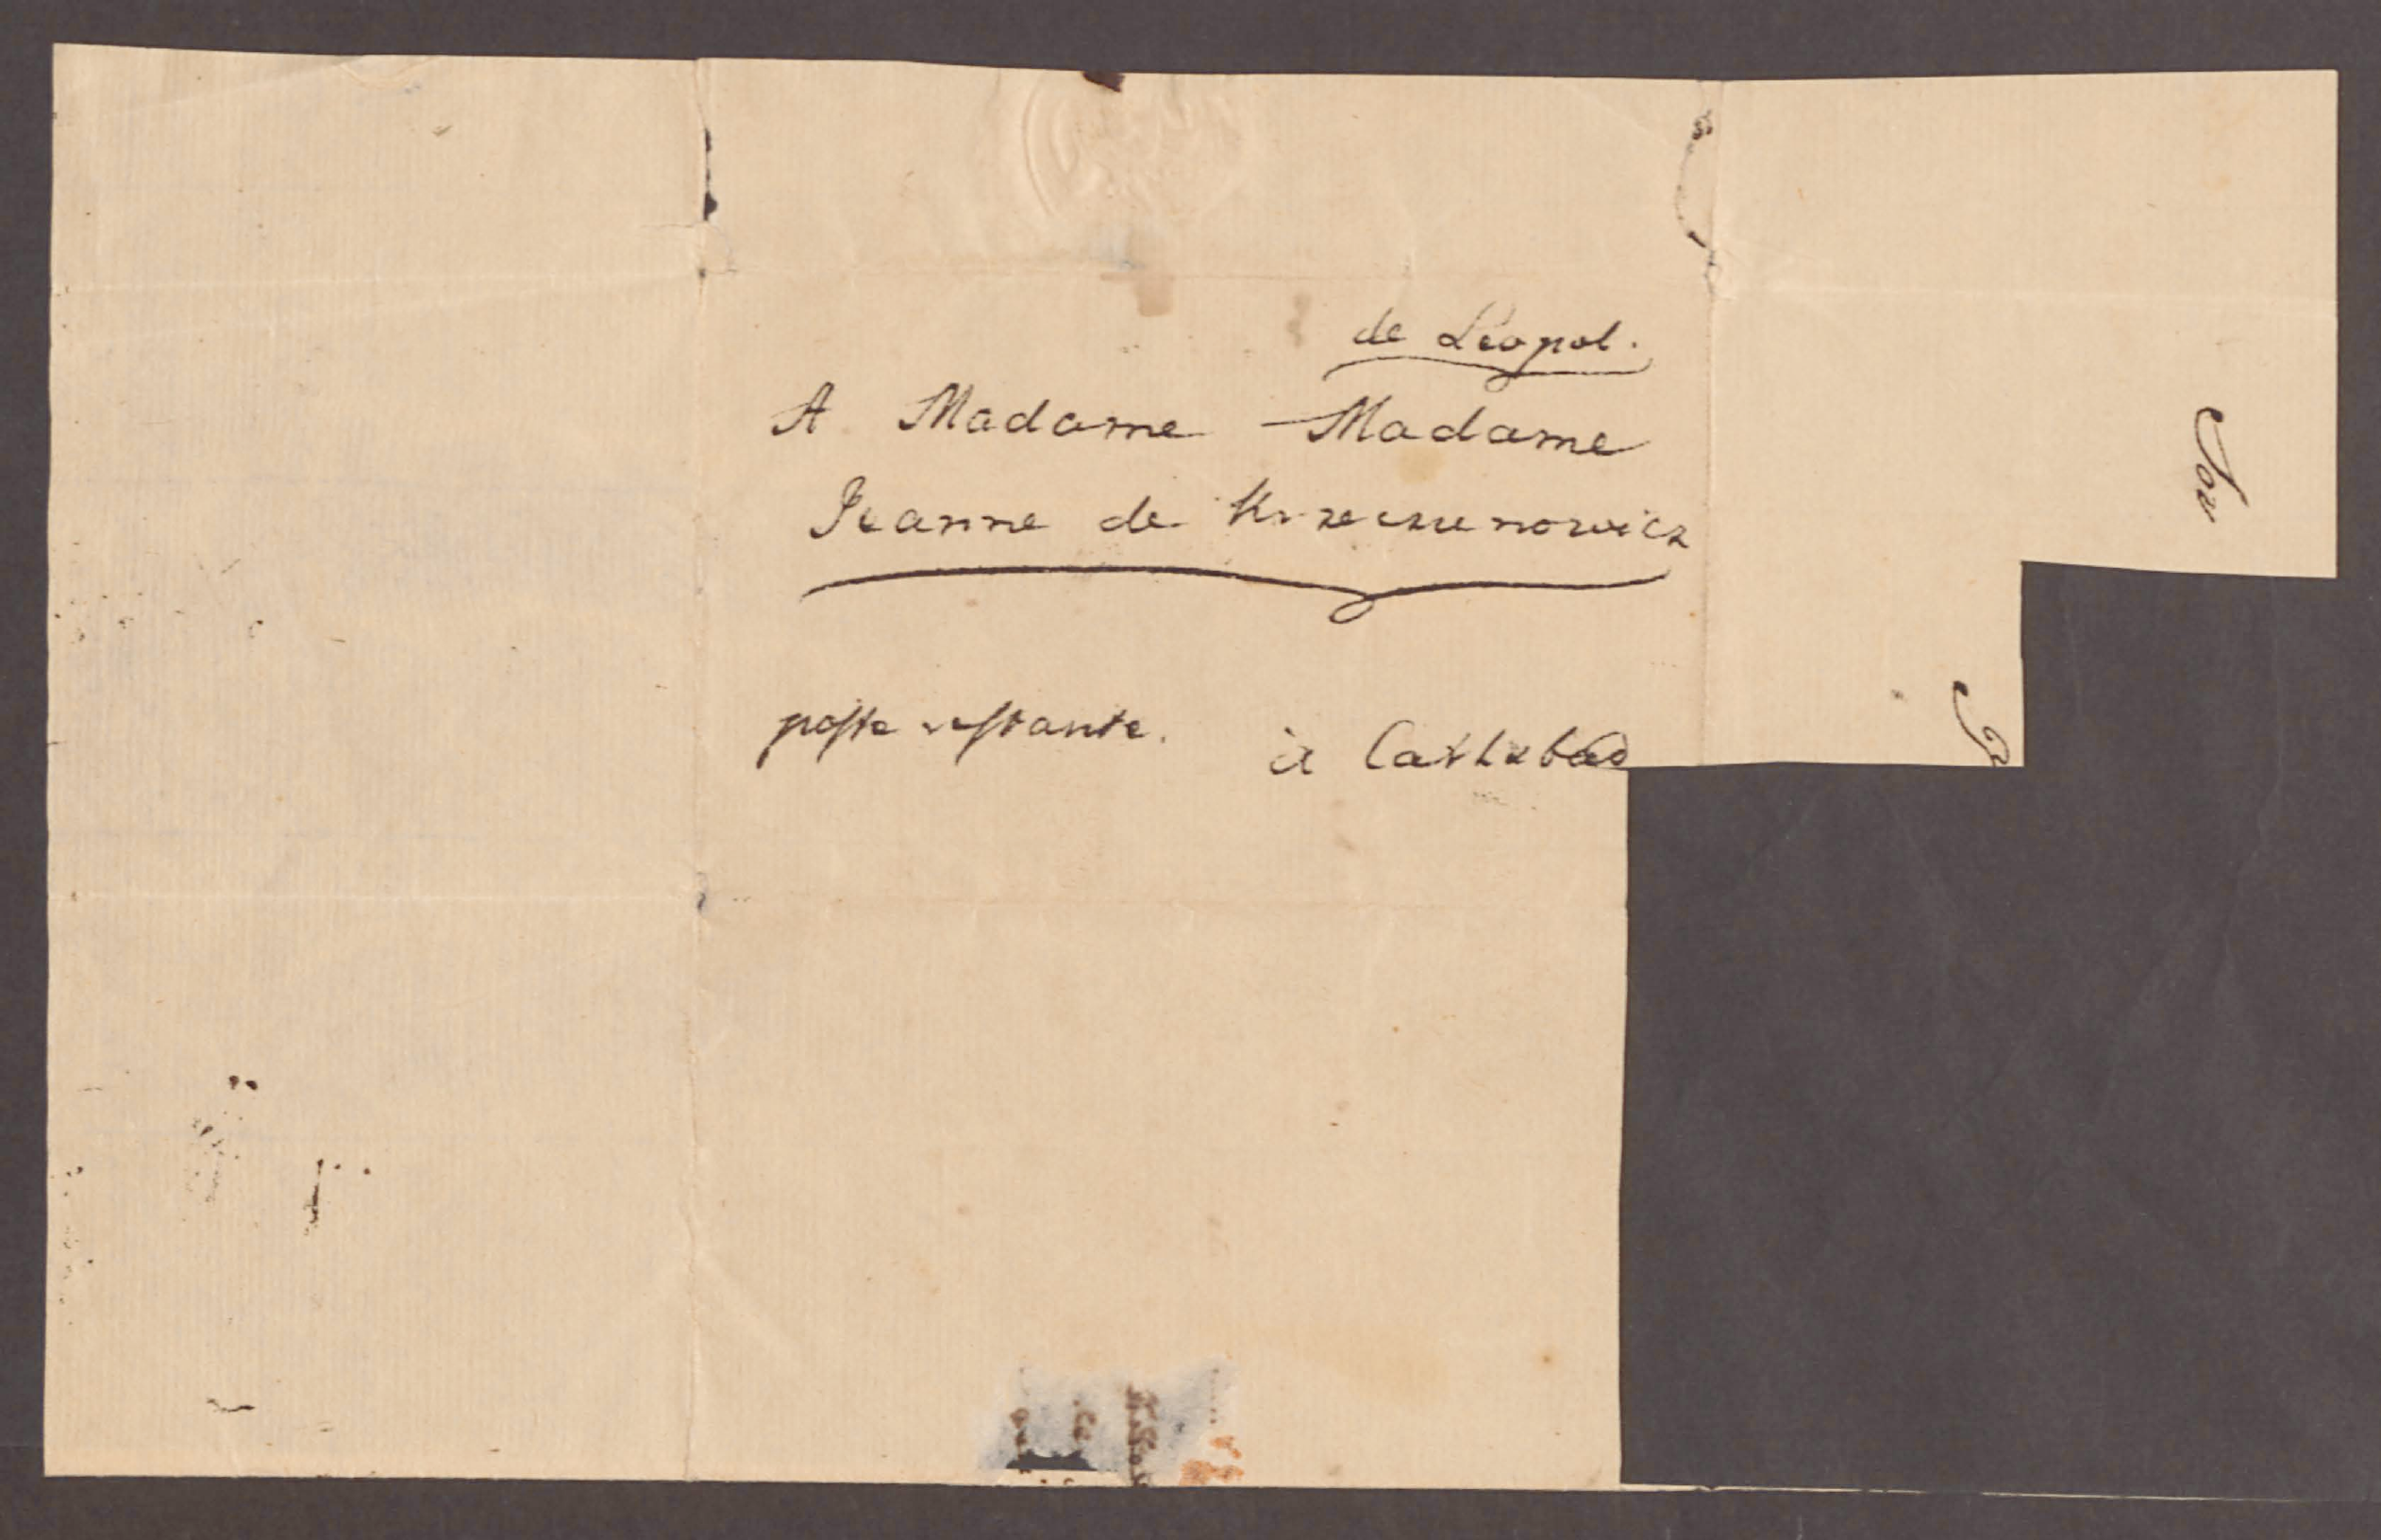 de Léopol.
A Madame Madame
Jeanne de Krzeczunowicz
poste restante. à Carlsbad